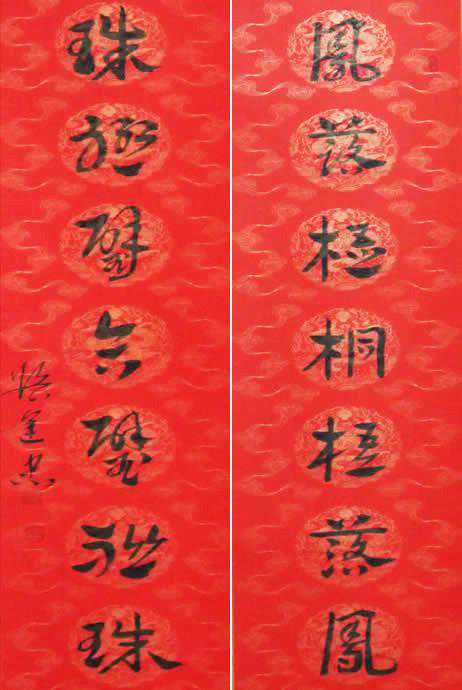 鳳落梧桐梧落鳳
珠聯璧合璧聯珠